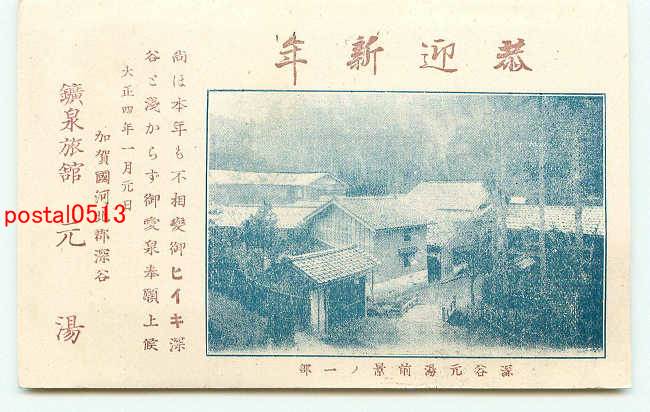 恭迎新年
尚は本年も不相變御ヒイキ深
谷と淺からず御愛泉奉願上候
大正四年一月元日
加賀國河北郡深谷
鑛泉旅館 元湯
深谷元湯前景ノ一部
postal0513